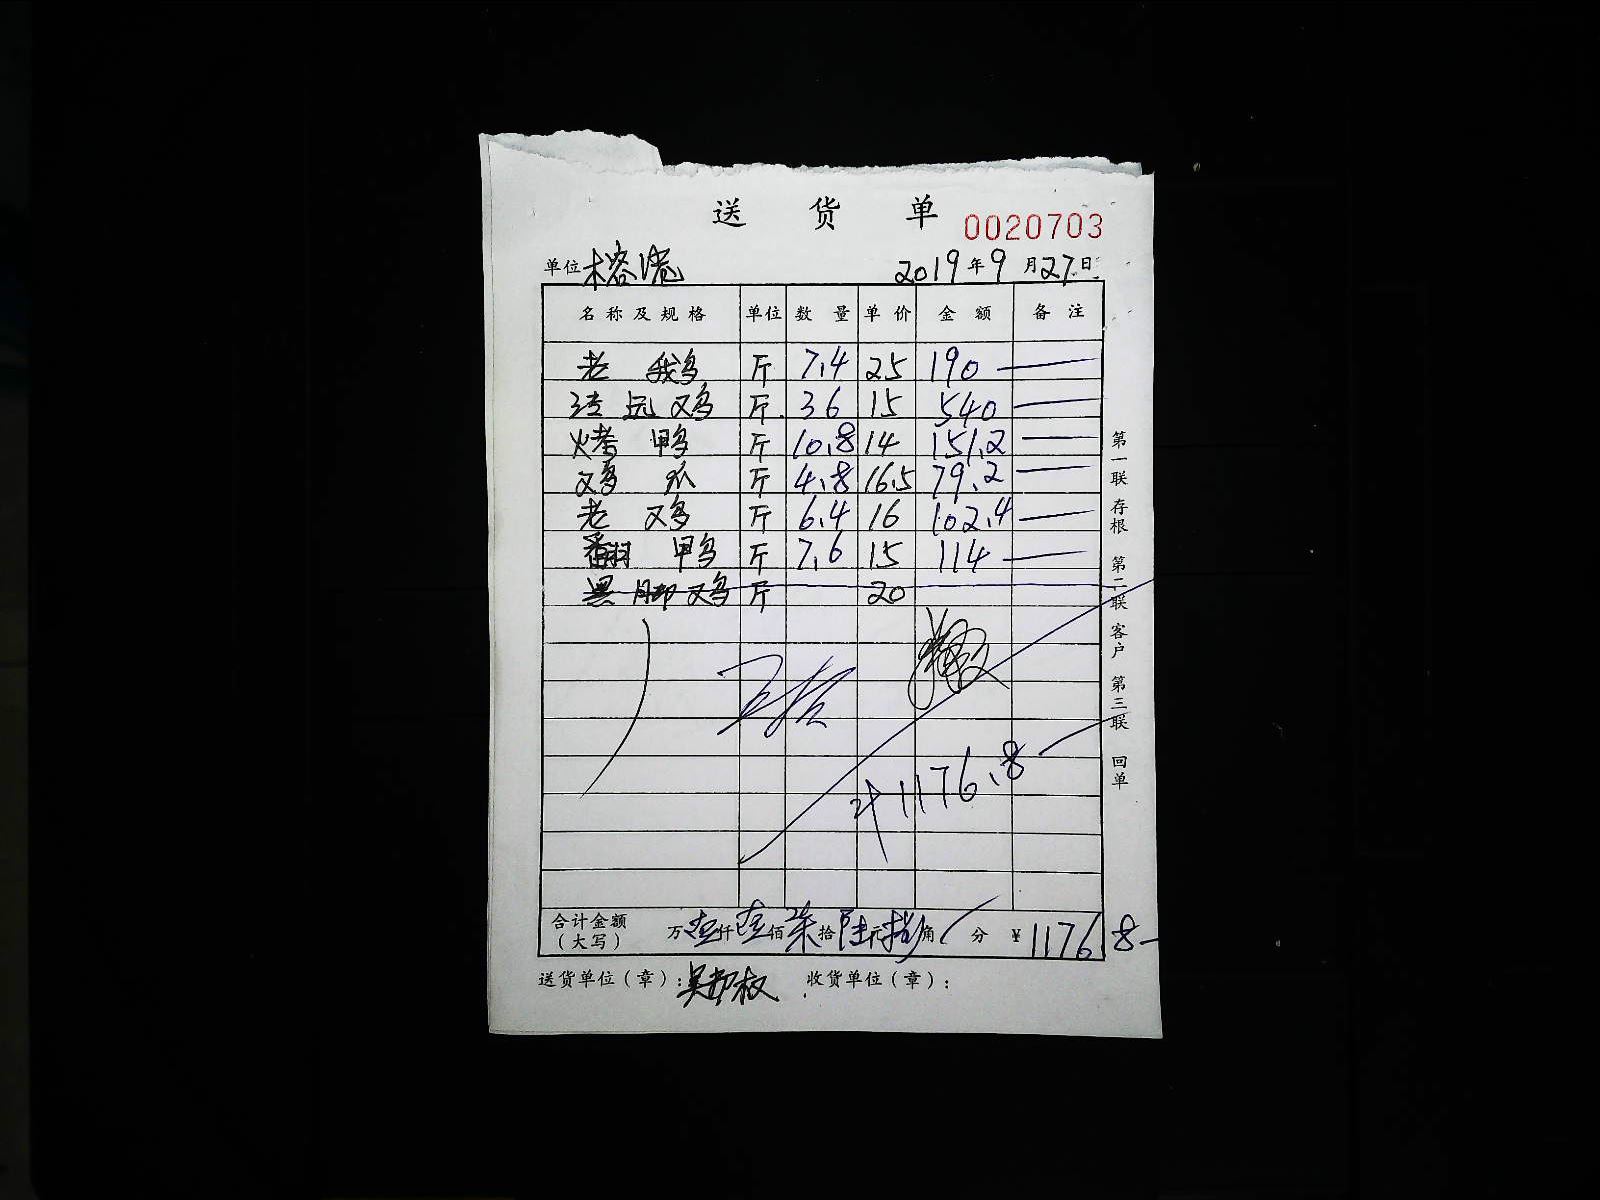 送 货 单 0020703
单位 榕港 2019年9月27日
名称及规格 单位 数量 单价 金额 备注
老 鹅 斤 7.4 25 190
清远鸡 斤 36 15 540
烤鸭 斤 10.8 14 151.2
鸡爪 斤 4.8 16.5 79.2
老鸡 斤 6.4 16 102.4
翻鸭 斤 7.6 15 114
黑脚鸡 斤 20
计1176.8
合计金额（大写） 万壹仟壹佰柒拾陆元捌角 分 ¥1176.8
送货单位（章）： 收货单位（章）：
第一联 存根 第二联 客户 第三联 回单